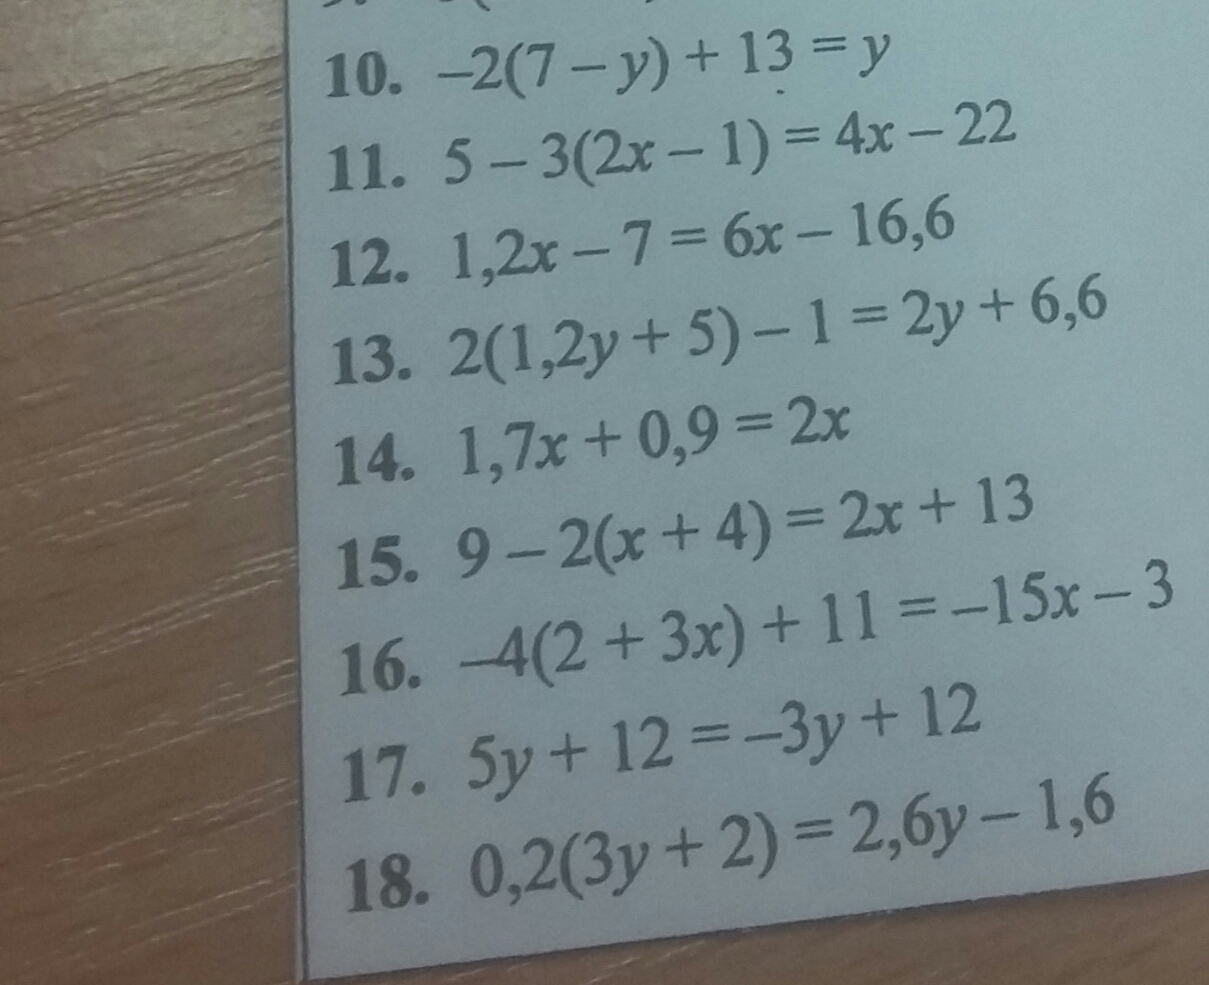 10. –2(7 – y) + 13 = y
11. 5 – 3(2x – 1) = 4x – 22
12. 1,2x – 7 = 6x – 16,6
13. 2(1,2y + 5) – 1 = 2y + 6,6
14. 1,7x + 0,9 = 2x
15. 9 – 2(x + 4) = 2x + 13
16. –4(2 + 3x) + 11 = –15x – 3
17. 5y + 12 = –3y + 12
18. 0,2(3y + 2) = 2,6y – 1,6